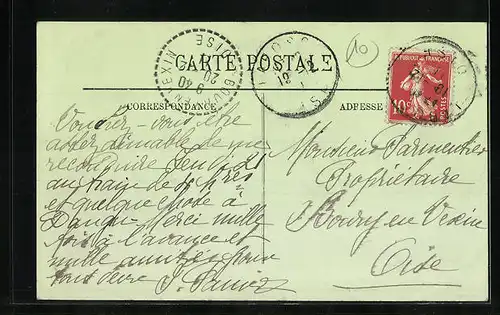 CARTE POSTALE
CORRESPONDANCE
ADRESSE
RÉPUBLIQUE FRANÇAISE
10
POSTES
OISE
10
Voudriez-vous être
assez aimable de me
reconduire Jeudi
au train de 5h
et quelque chose à
Dangu. Merci mille
fois à l'avance et
mille amitiés pour
tous deux
Monsieur Parmentier
Propriétaire
Boury en Vexin
Oise